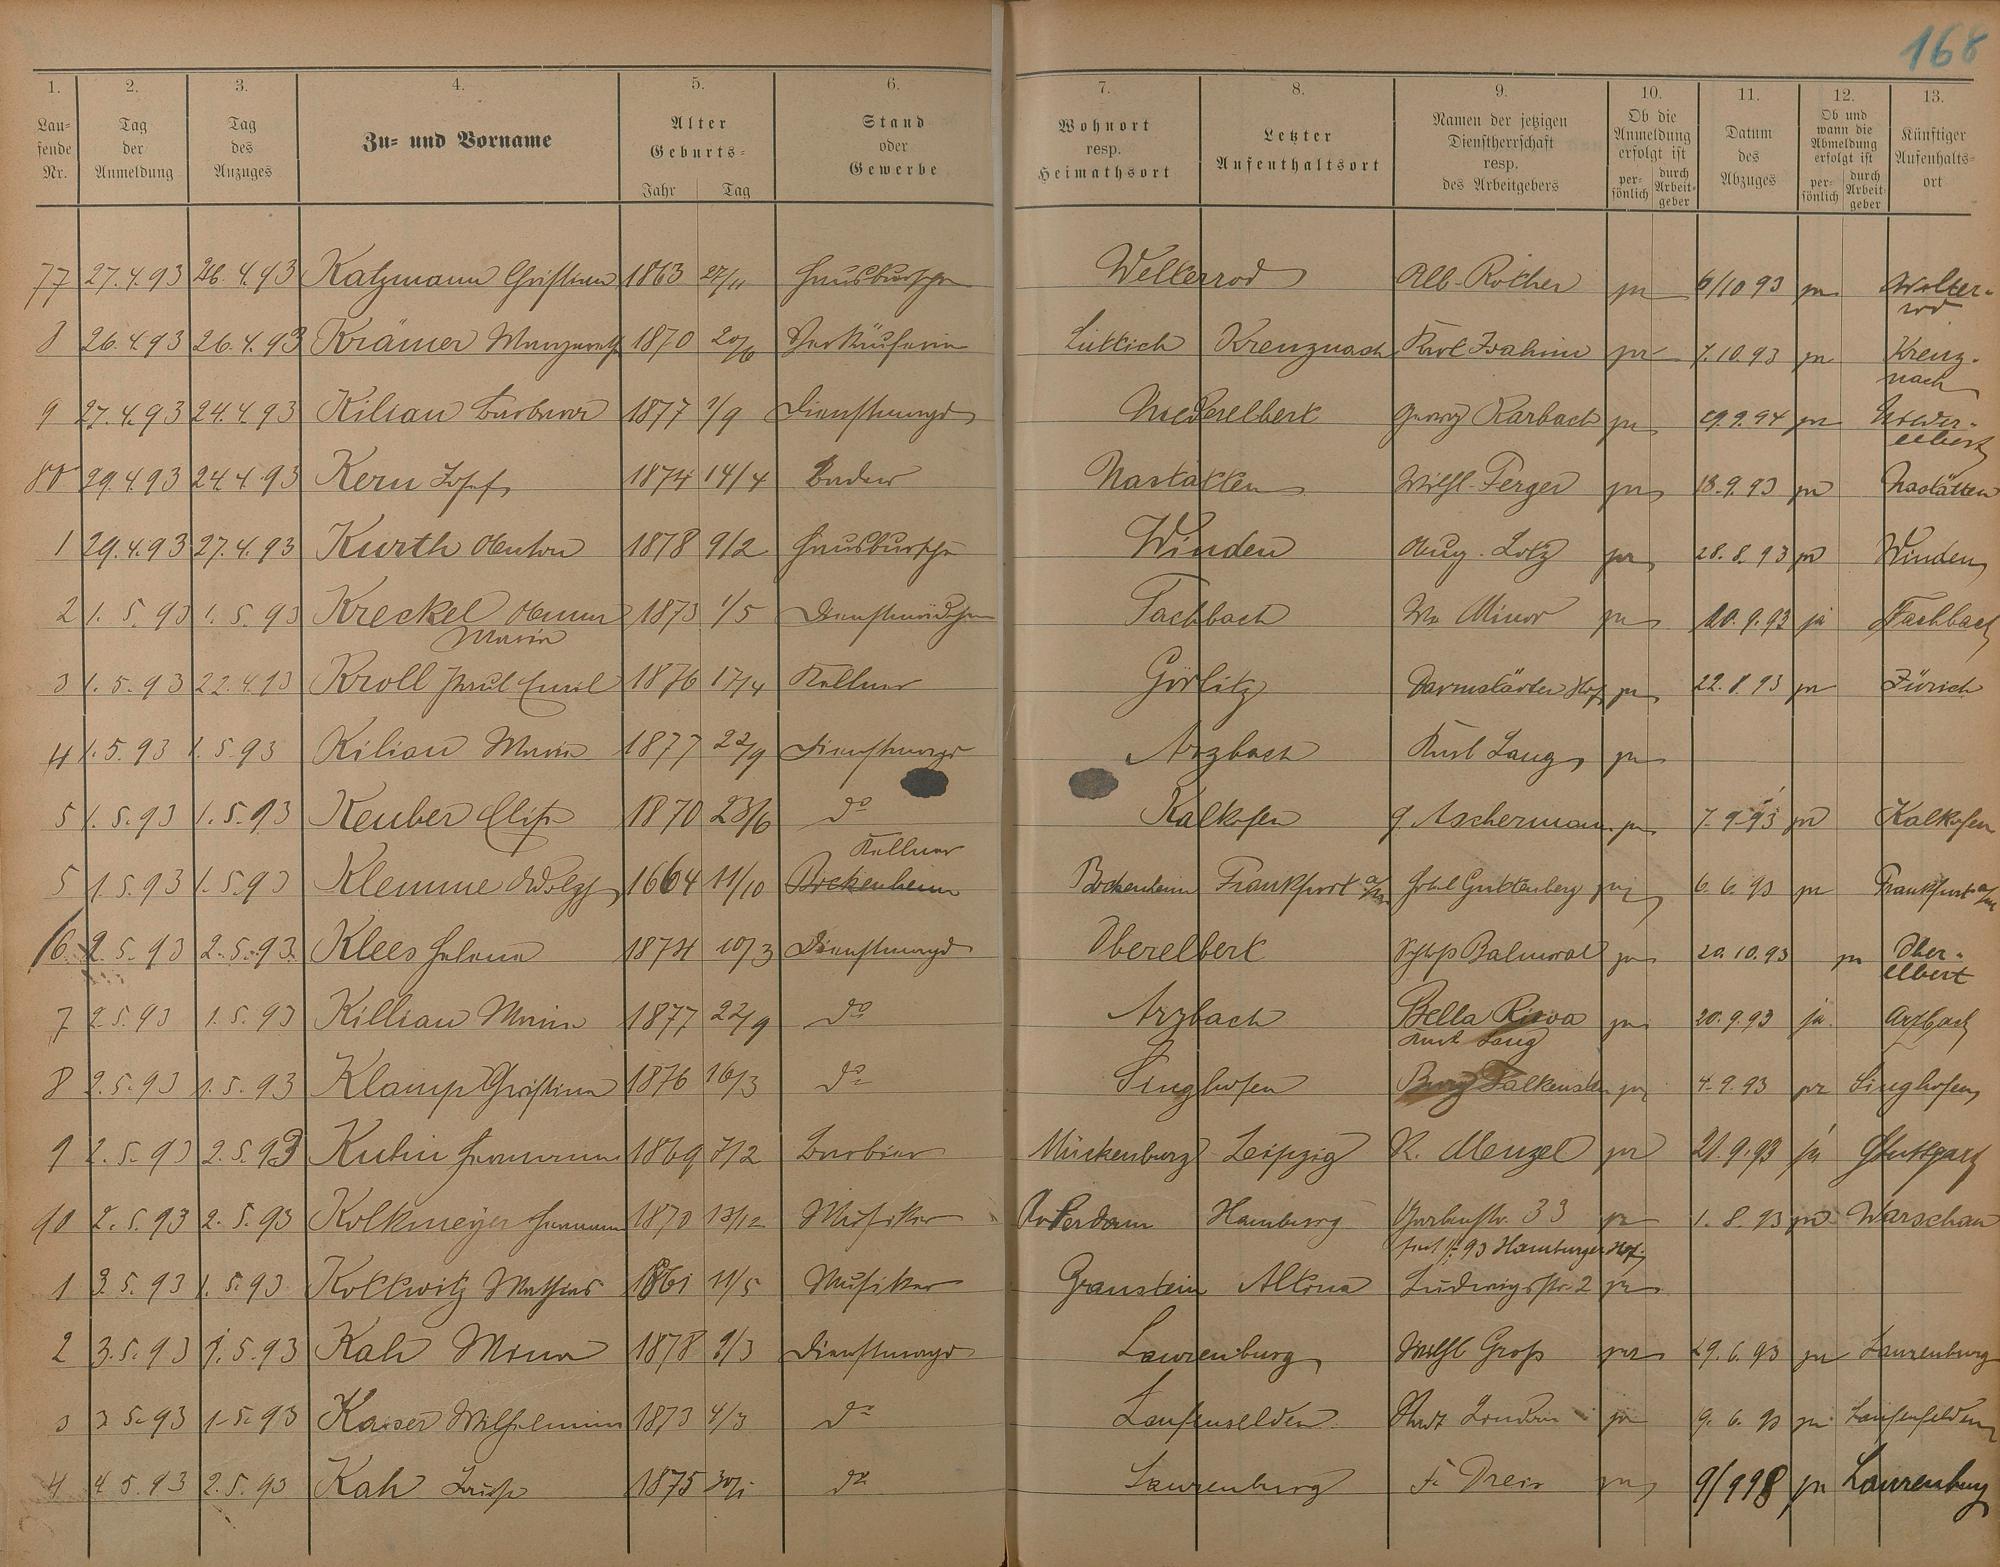 168
1. 2. 3. 4. 5. 6. 7. 8. 9. 10. 11. 12. 13.
Lau- fende Nr.
Tag der Anmeldung
Tag des Anzuges
Zu- und Vorname
Alter Geburts- Jahr Tag
Stand oder Gewerbe
Wohnort resp. Heimathsort
Letzter Aufenthaltsort
Namen der jetzigen Dienstherrschaft resp. des Arbeitgebers
Ob die Anmeldung erfolgt ist per- sönlich durch Arbeit- geber
Datum des Abzuges
Ob und wann die Abmeldung erfolgt ist per- sönlich durch Arbeit- geber
Künftiger Aufenhalts- ort
77 27.4.93 26.4.93 Katzmann Christian 1863 27/11 Hausbursche Welterrod Alb. Rother ja 6/10 93 ja Welter-
rod
8 26.4.93 26.4.93 Krämer Margareth 1870 20/6 Verkäuferin Lüttich Kreuznach Karl ja 7.10.93 ja Kreuz-
nach
9 27.4.93 24.4.93 Kilian Barbara 1877 1/9 Dienstmagd Niederelbert Georg Karbach ja 19.9.94 ja Nieder-
elbert
80 29.4.93 24.4.93 Kern Josef 1874 14/4 Bader Nastätten Wilh. Ferger ja 18.9.93 ja Nastätten
1 29.4.93 27.4.93 Kurth Anton 1878 9/2 Hausbursche Winden Aug. Lotz ja 28.8.93 ja Winden
2 1.5.93 1.5.93 Kreckel Anna 1873 1/5 Dienstmädchen Fachbach Ww Minor ja 20.9.93 ja Fachbach
Maria
3 1.5.93 22.4.93 Kroll Paul Emil 1876 17/4 Kellner Görlitz Darmstädter Hof ja 22.8.93 ja Zürich
4 1.5.93 1.5.93 Kilian Maria 1877 22/9 Dienstmagd Arzbach Karl Lang ja
5 1.5.93 1.5.93 Keuber Elise 1870 23/6 do Kalkofen G. Aschermann ja 7.9.93 ja Kalkofen
Kellner
5 1.5.93 1.5.93 Klemme Adolf 1664 11/10 Bockenheim Bockenheim Frankfurt a/M Hotel Guttenberg ja 6.6.93 ja Frankfurt a/M
6. 2.5.93 2.5.93 Klees Helena 1874 10/3 Dienstmagd Oberelbert Schloß Balmoral ja 20.10.93 ja Ober-
elbert
7 2.5.93 1.5.93 Killian Maria 1877 22/9 do Arzbach Bella Riva ja 20.9.93 ja Arzbach
Karl Lang
8 2.5.93 1.5.93 Klamp Christina 1876 16/3 do Singhofen Burg Falkenstein ja 4.9.93 ja Singhofen
9 2.5.93 2.5.93 Kuhn Hermann 1869 7/2 Barbier Mückenburg Leipzig R. Menzel ja 21.9.93 ja Stuttgart
90 2.5.93 2.5.93 Kolkmeyer Hermann 1870 13/12 Musiker Potsdam Hamburg 33 ja 1.8.93 ja Warschau
93 Hamburger Hof
1 3.5.93 1.5.93 Kollwitz Mathias 1861 11/5 Musiker Granstein Altona Ludwigstr. 2 ja
2 3.5.93 1.5.93 Kah Mina 1878 9/3 Dienstmagd Laurenburg Wilh. Groß ja 29.6.93 ja Laurenburg
3 3.5.93 1.5.93 Kaiser Wilhelmine 1873 4/3 do Laufenselden Stadt London ja 9.6.93 ja Laufenselden
4 4.5.93 2.5.93 Kah Luise 1875 30/1 do Laurenburg Fr. Dreis ja 9/9 98 ja Laurenburg